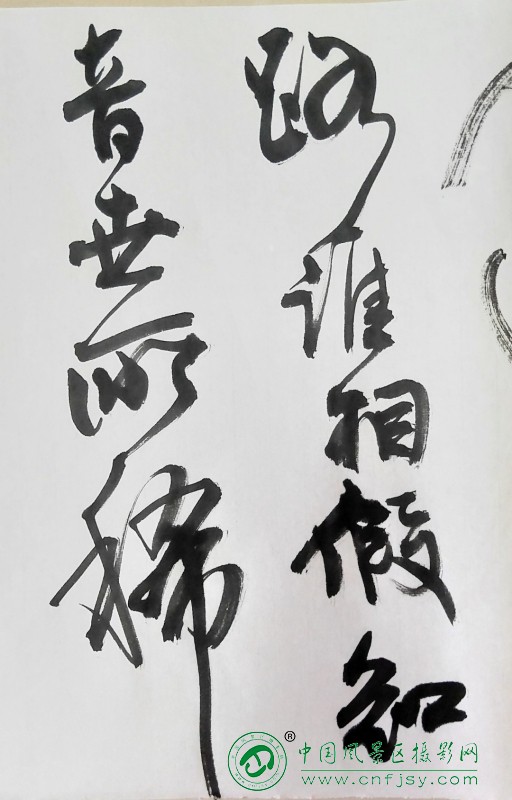 路谁相假知
音世所稀
®中国风景区摄影网
www.cnfjsy.com